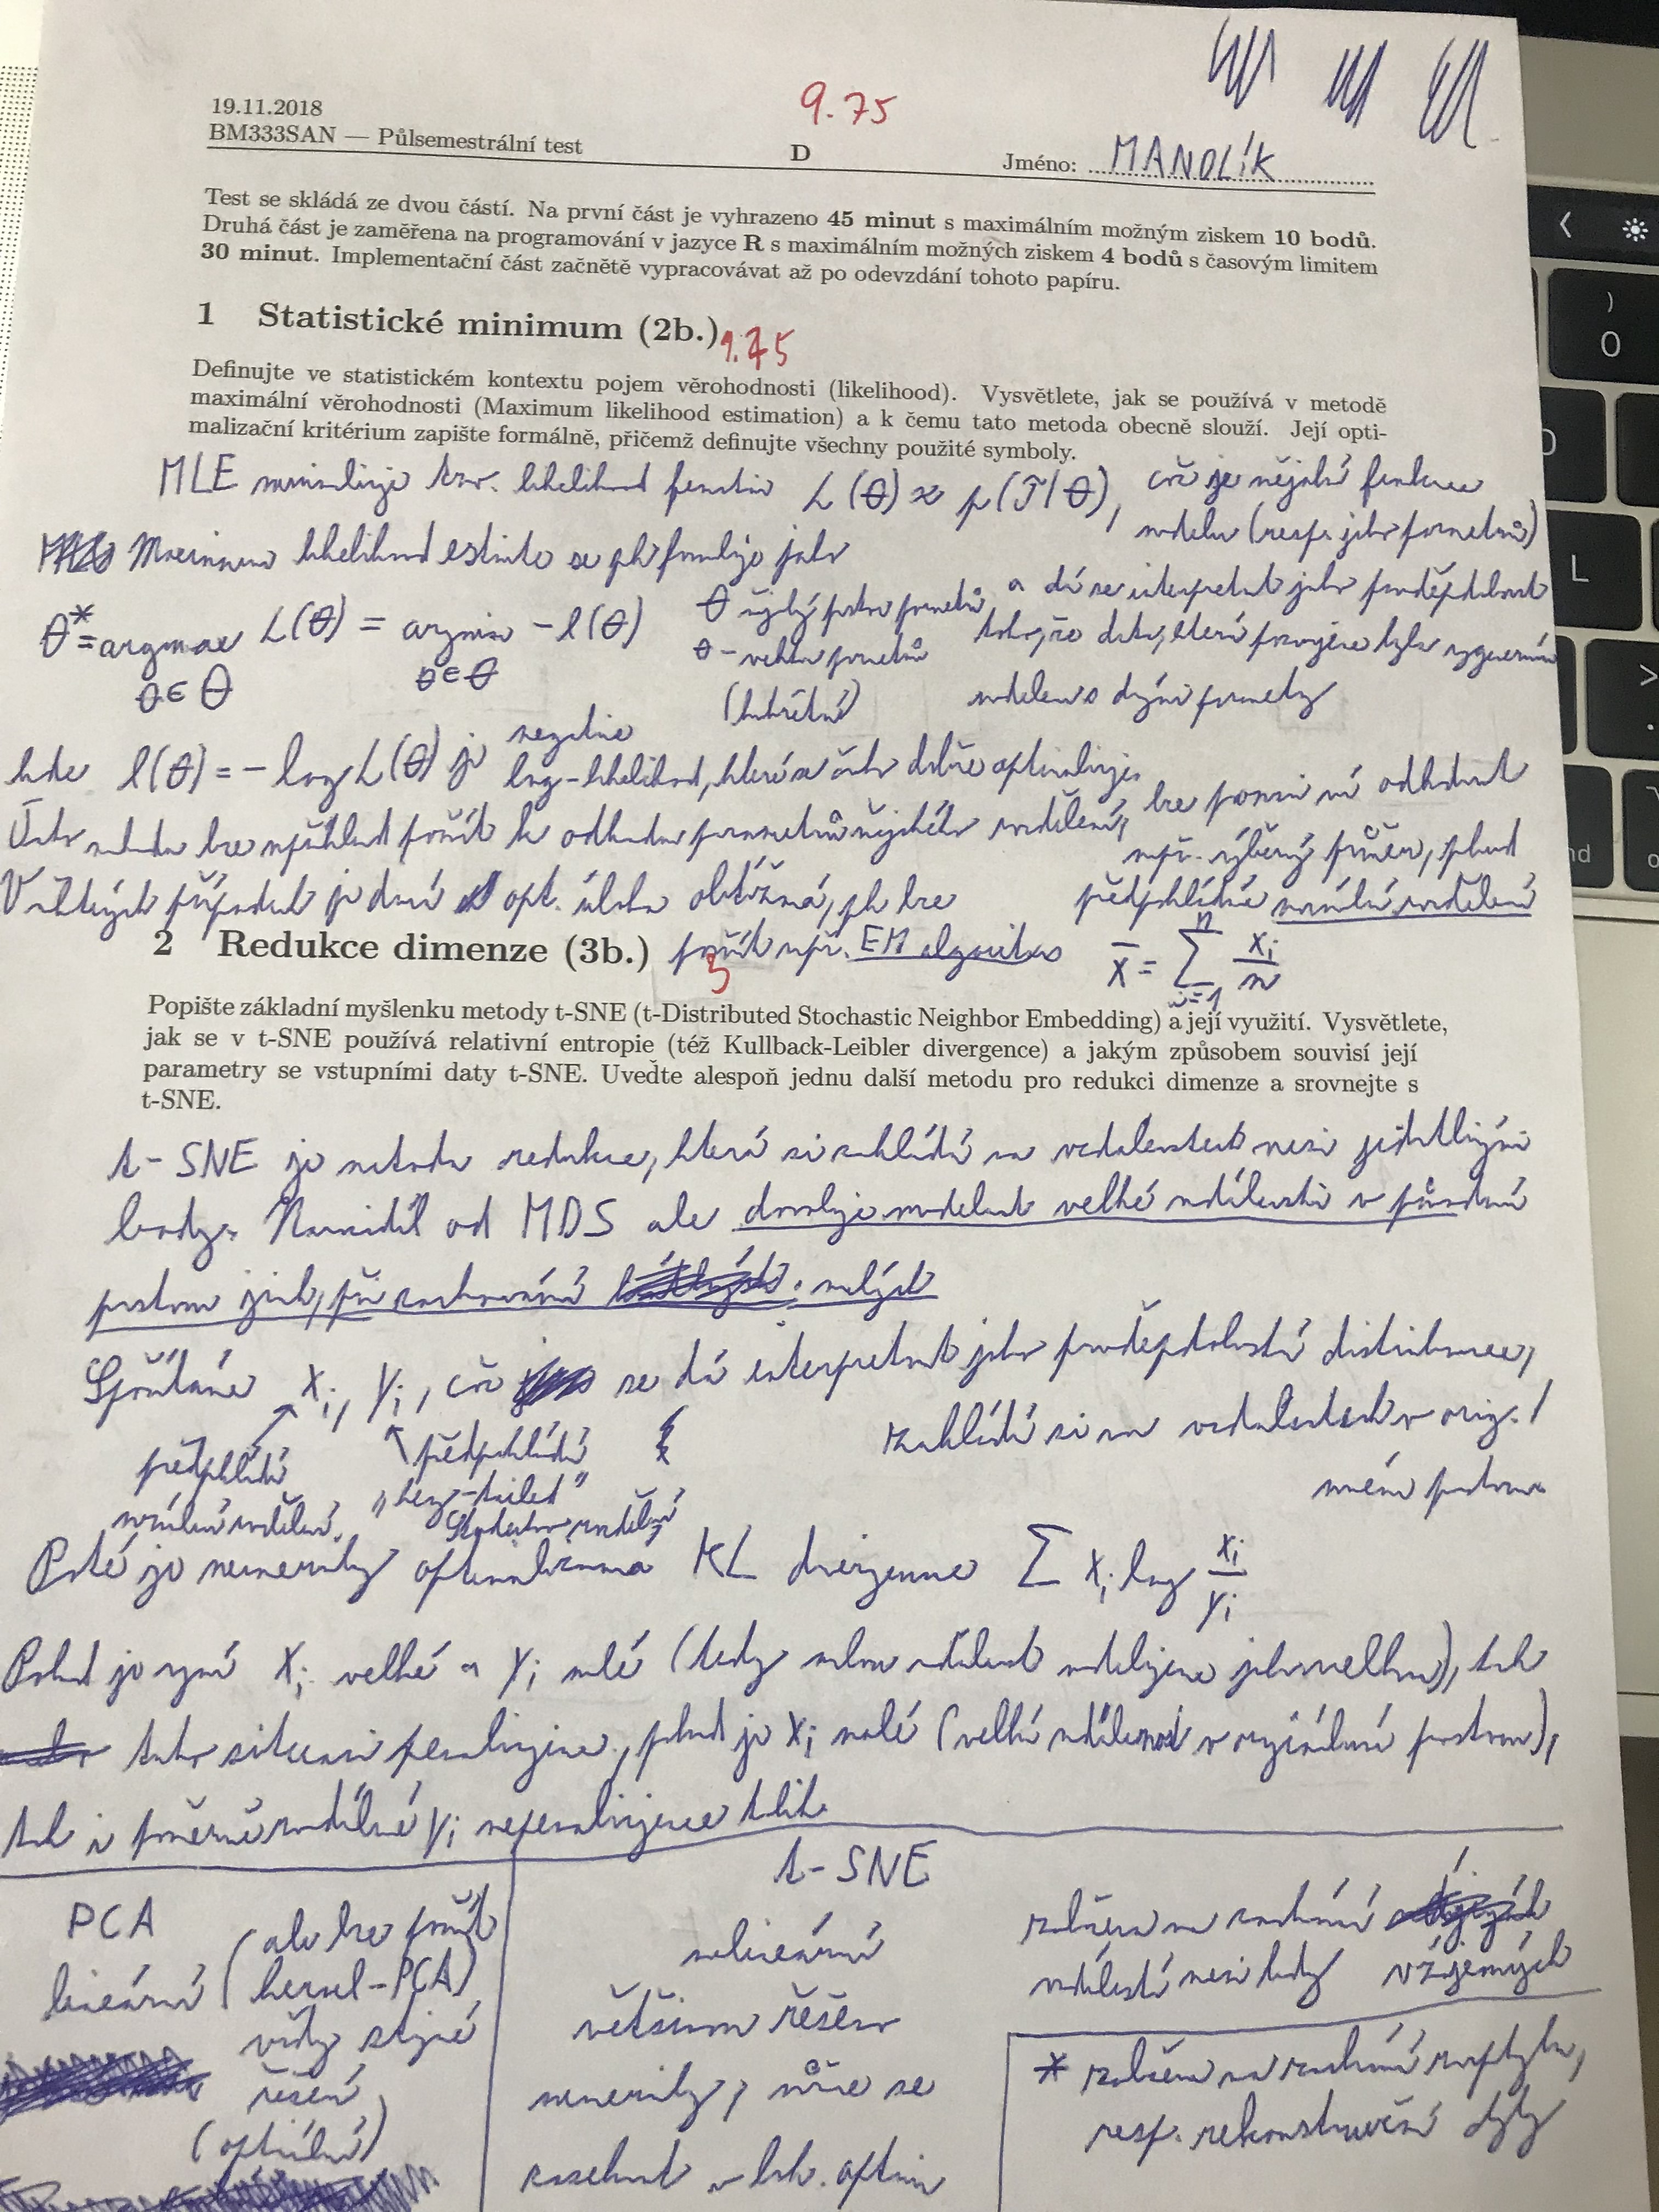 19.11.2018
9.75
BM333SAN — Půlsemestrální test
D
Jméno: MANDLÍK
Test se skládá ze dvou částí. Na první část je vyhrazeno 45 minut s maximálním možným ziskem 10 bodů.
Druhá část je zaměřena na programování v jazyce R s maximálním možných ziskem 4 bodů s časovým limitem
30 minut. Implementační část začnětě vypracovávat až po odevzdání tohoto papíru.
1 Statistické minimum (2b.)
Definujte ve statistickém kontextu pojem věrohodnosti (likelihood). Vysvětlete, jak se používá v metodě
maximální věrohodnosti (Maximum likelihood estimation) a k čemu tato metoda obecně slouží. Její opti-
malizační kritérium zapište formálně, přičemž definujte všechny použité symboly.
MLE tzv. likelihood L(θ) p(T|θ), což je nějaká funkce
modelu (resp. jeho parametrů)
likelihood se pak formuluje jako
a dá se interpretovat jako pravděpodobnost
θ* = argmax L(θ) = argmin -l(θ)
θ∈Θ θ∈Θ
θ - vektor parametrů
(konkrétní)
modelem s danými parametry
negativní
kde l(θ) = - log L(θ) je log-likelihood, která se často dobře optimalizuje.
Tuto metodu lze například použít k odhadu parametrů nějakého rozdělení, lze pomocí ní odhadnout
např. výběrový průměr, pokud
V některých případech je daná opt. úloha obtížná, pak lze
předpokládáme normální rozdělení
2 Redukce dimenze (3b.)
použít např. EM algoritmus
x̄ = Σ i=1 n xi/n
3
Popište základní myšlenku metody t-SNE (t-Distributed Stochastic Neighbor Embedding) a její využití. Vysvětlete,
jak se v t-SNE používá relativní entropie (též Kullback-Leibler divergence) a jakým způsobem souvisí její
parametry se vstupními daty t-SNE. Uveďte alespoň jednu další metodu pro redukci dimenze a srovnejte s
t-SNE.
t-SNE je metoda redukce, která si zakládá na vzdálenostech mezi jednotlivými
body. Narozdíl od MDS ale dovoluje modelovat velké vzdálenosti v původním
prostoru jinak, při zachování malých
Spočítáme xi, yi, což se dá interpretovat jako pravděpodobnostní distribuce,
zakládá si na vzdálenostech v orig. /
předpokládá
předpokládá
novém prostoru
normální rozdělení
"heavy-tailed"
Studentovo rozdělení
Poté je numericky optimalizována KL divergence Σ xi log xi/yi
Pokud je nyní xi velké a yi malé (tedy malou vzdálenost modelujeme jako velkou), tak
tuto situaci penalizujeme, pokud je xi malé (velká vzdálenost v originálním prostoru),
tak i poměrně rozdílné yi nepenalizujeme tolik.
PCA
lineární (ale lze použít
kernel-PCA)
vždy stejné
řešení
(optimální)
t-SNE
nelineární
většinou řešeno
numericky, může se
zaseknout v lok. optim
založena na zachování
vzdáleností mezi body vzájemných
* založena na zachování rozptylu,
resp. rekonstrukční chyby